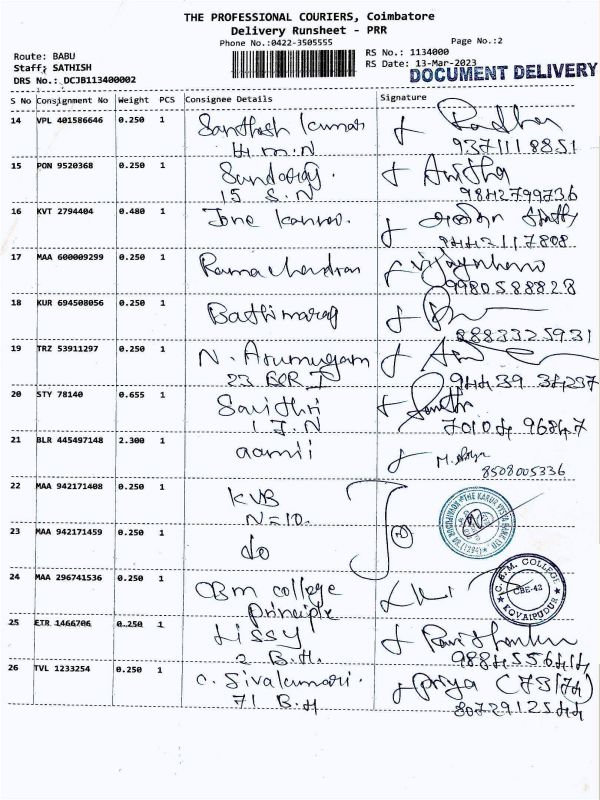 THE PROFESSIONAL COURIERS, Coimbatore
Delivery Runsheet - PRR
Phone No.:0422-3505555
Page No.:2
Route: BABU
RS No.: 1134000
Staff: SATHISH
RS Date: 13-Mar-2023
DRS No.: DCJB113400002
DOCUMENT DELIVERY
S No Consignment No Weight PCS Consignee Details Signature
14 VPL 401586646 0.250 1 Santhosh Kumar
H.M.N 9371118851
15 PON 9520368 0.250 1 Sundaraj. Anitha
15 S.N 9842799736
16 KVT 2794404 0.480 1
9442117808
17 MAA 600009299 0.250 1 Ramachandran
9980588828
18 KUR 694508056 0.250 1 Bathimaraj
8883325931
19 TRZ 53911297 0.250 1 N. Arumugam
94439 34237
20 STY 78140 0.655 1 Savithri
1 J.N 70104 96847
21 BLR 445497148 2.300 1 aamii
8508005336
22 MAA 942171408 0.250 1 KVB
N=10.
23 MAA 942171459 0.250 1 do
24 MAA 296741536 0.250 1 CBM college
principle
C.B.M. COLLEGE
CBE-42
KOVAIPUDUR
25 EIR 1466706 0.250 1 Lissy
2 B.H. 9884556444
26 TVL 1233254 0.250 1 C. Sivakumari. Priya
71 B.H 8072912544